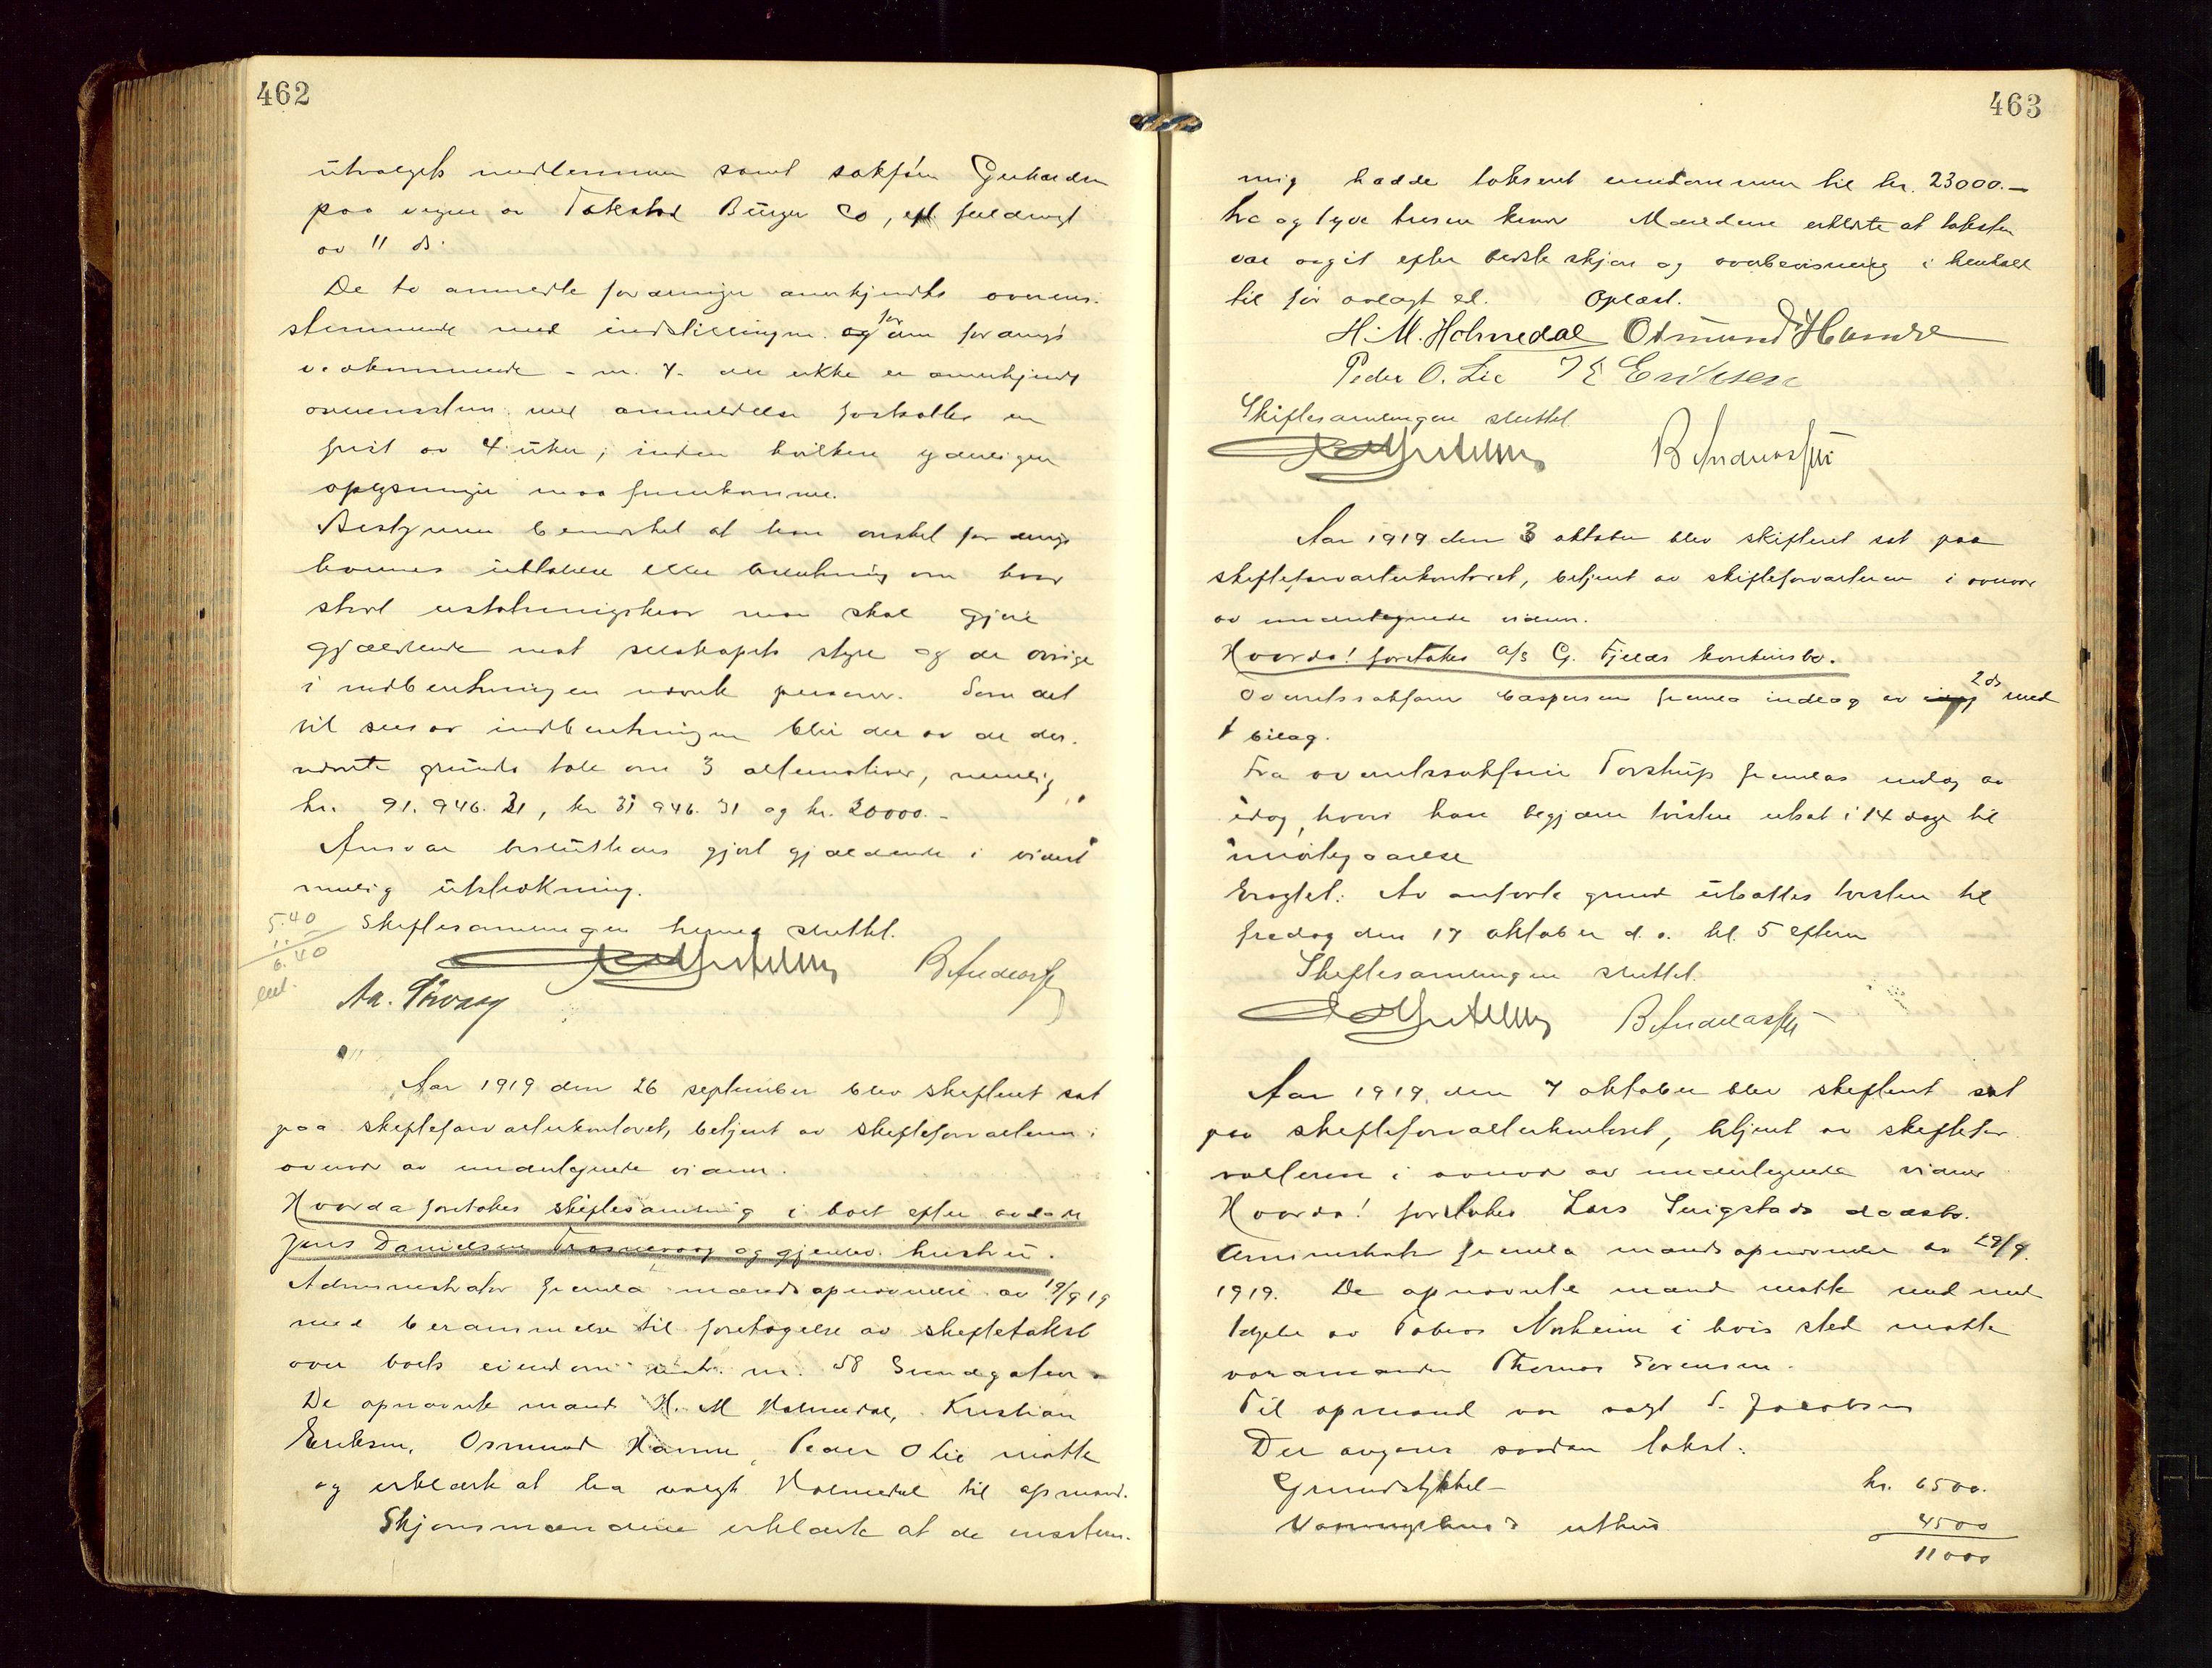 462
utvalgets medlemmer samt sakfør Gerhardsen
paa vegne av Takstad Bürger Co, efl fuldmagt
av 11 ds.
De to anmeldte fordringer anerkjendtes overens-
stemmende med indstillingen og for
vedkommende nr. 7. der ikke er anerkjendt
overensstem. med anmeldelse fastsattes en
frist av 4 uker, inden hvilken yderligere
oplysninger maa fremkomme.
Bestyreren bemerket at han ønsket fordrings-
havernes uttalelse eller beslutning om hvor
stort erstatningskrav man skal gjøre
gjældende mot selskapets styre og de øvrige
i indberetningen nævnte personer. Som det
vil sees av indberetningen blir der av de der-
nævnte grunde tale om 3 alternativer, nemlig
kr. 91.946.31, kr 31 946.31 og kr. 30000.-
Ansvar besluttedes gjort gjældende i videst
mulig utstrækning.
5.40
1.
6.40
Skiftesamlingen hermed sluttet.
B Andreassen
Aar 1919 den 26 september blev skifteret sat
paa skifteforvalterkontoret, betjent av skifteforvalteren i
overvær av undertegnede vidner.
Hvorda foretokes skiftesamling i boet efter avdøde
Jens Danielsen og gjenlev. hustru.
Administrator fremla mandsopnævnelse av 19/9 19
med berammelse til foretagelse av skiftetakst
over boets eiendom matr. nr. 58 Sundgaten.
De opnævnte mænd H. M Holmedal, Kristian
Eriksen, Osmund Hamre, Peder O Lie møtte
og erklærte at ha valgt Holmedal til opmand.
Skjønsmændene erklærte at de enstem-
463
mig hadde taksert eiendommen til kr. 23000.-
tre og tyve tusen kroner Mændene erklærte at taksten
var avgit efter bedste skjøn og overbevisning i henhold
til før avlagt ed. Oplæst.
H. M. Holmedal Osmund Hamre
Peder O. Lie K Eriksen
Skiftesamlingen sluttet.
B Andreassen
Aar 1919 den 3 oktober blev skifteret sat paa
skifteforvalterkontoret, betjent av skifteforvalteren i overvær
av undertegnede vidner.
Hvorda! foretokes a/s G. Fjelds konkursbo.
Overretssakfører Caspersen fremla indlæg av 2 ds med
1 bilag.
Fra overretssakfører Torstrup fremlas indlæg av
idag, hvori han begjærer tvisten utsat i 14 dage til
imøtegaaelse
Eragtet: Av anførte grund utsattes tvisten til
fredag den 17 oktober d. a. kl. 5 efterm
Skiftesamlingen sluttet.
B Andreassen
Aar 1919, den 7 oktober blev skifteret sat
paa skifteforvalterkontoret, betjent av skiftefor-
valteren i overvær av undertegnede vidner
Hvorda! foretokes Lars dødsbo.
Administrator fremla mandsopnævnelse av 29/9.
1919. De opnævnte mænd møtte med und-
tagelse av Tobias Norheim i hvis sted møtte
varamanden Thomas Sørensen.
Til opmand var valgt S. Jacobsen
Der avgaves saadan takst:
Grundstykket – kr. 6500.
Vaaningshus & uthus 4500
11000